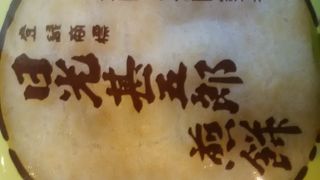 登録商標
日光甚五郎
煎餅